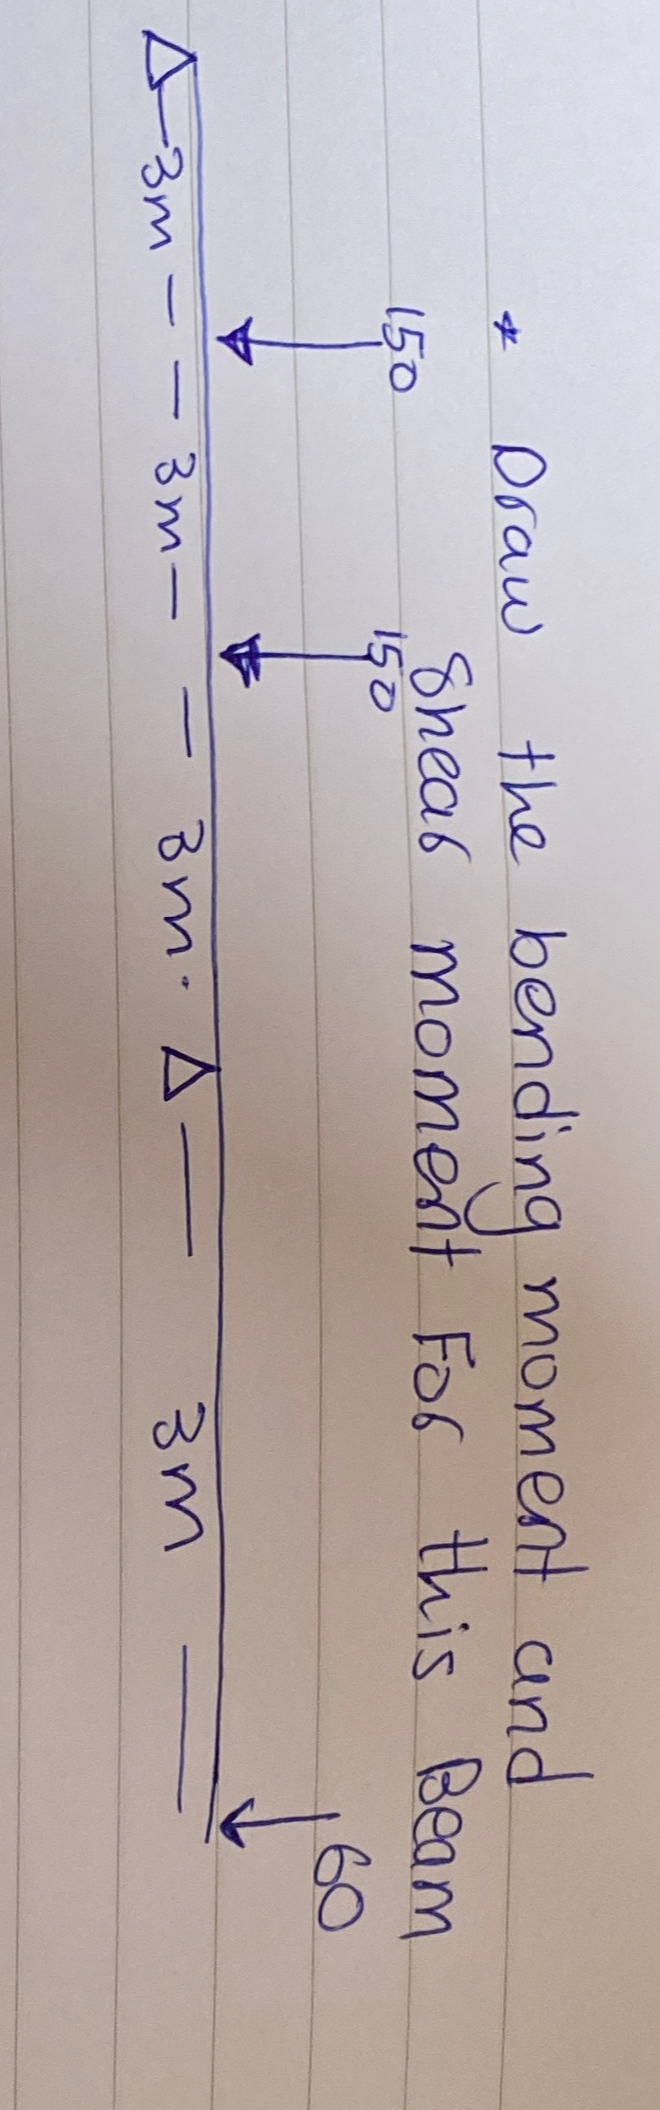 * Draw the bending moment and
Shear moment For this Beam
150 150 60
3m 3m 3m 3m